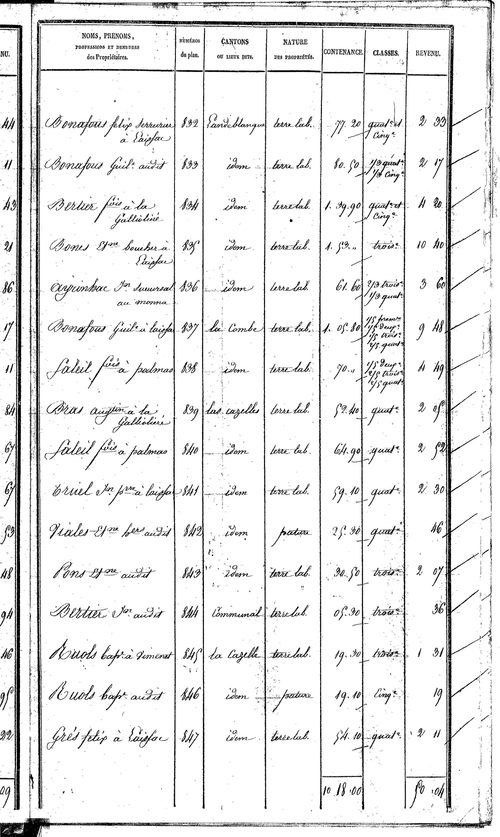 NU.
NOMS, PRENOMS, PROFESSIONS ET DEMEURES des Propriétaires. NUMÉROS du plan. CANTONS OU LIEUX DITS. NATURE DES PROPRIÉTÉS. CONTENANCE. CLASSES. REVENU.
44 Bonafous felix serrurier à Laissac 832 Landeblanque terre lab. 77. 20 quat.e et cinq.e 2 33
11 Bonafous Guil. audit 833 idem terre lab. 80. 50 1/2 quat.e 1/2 cinq.e 2 17
43 Bertier fcois à la Galtiérie 834 idem terre lab. 1. 39. 90 quat.e et cinq.e 4 20
21 Bones Etne boucher à Laissac 835 idem terre lab. 1. 53. " trois.e 10 40
86 Jn succursal au monna 836 idem terre lab. 61. 60 2/3 trois.e 1/3 quat.e 3 60
17 Bonafous Guil. à laissac 837 la Combe terre lab. 1. 05. 80 9 48
11 fcois à palmas 838 idem terre lab. 70. " 4 49
84 Bras augtin à la Galtiérie 839 las cazelles terre lab. 52. 40 quat.e 2 05
67 fcois à palmas 840 idem terre lab. 64. 90 quat.e 2 52
67 Truel Jn prre à laissac 841 idem terre lab. 59. 10 quat.e 2 30
53 Viales Etne hers audit 842 idem pature 25. 30 quat.e 46
48 Pons Etne audit 843 idem terre lab. 30. 50 trois.e 2 07
94 Bertier Jn audit 844 Communal terre lab. 05. 30 trois.e 36
46 Ruols bapt. à 845 la Cazelle terre lab. 19. 30 trois.e 1 31
95 Ruols bapt. audit 846 idem pature 19. 10 cinq.e 19
22 Grés felix à Laissac 847 idem terre lab. 54. 10 quat.e 2 11
09 10. 18. 00 50. 04